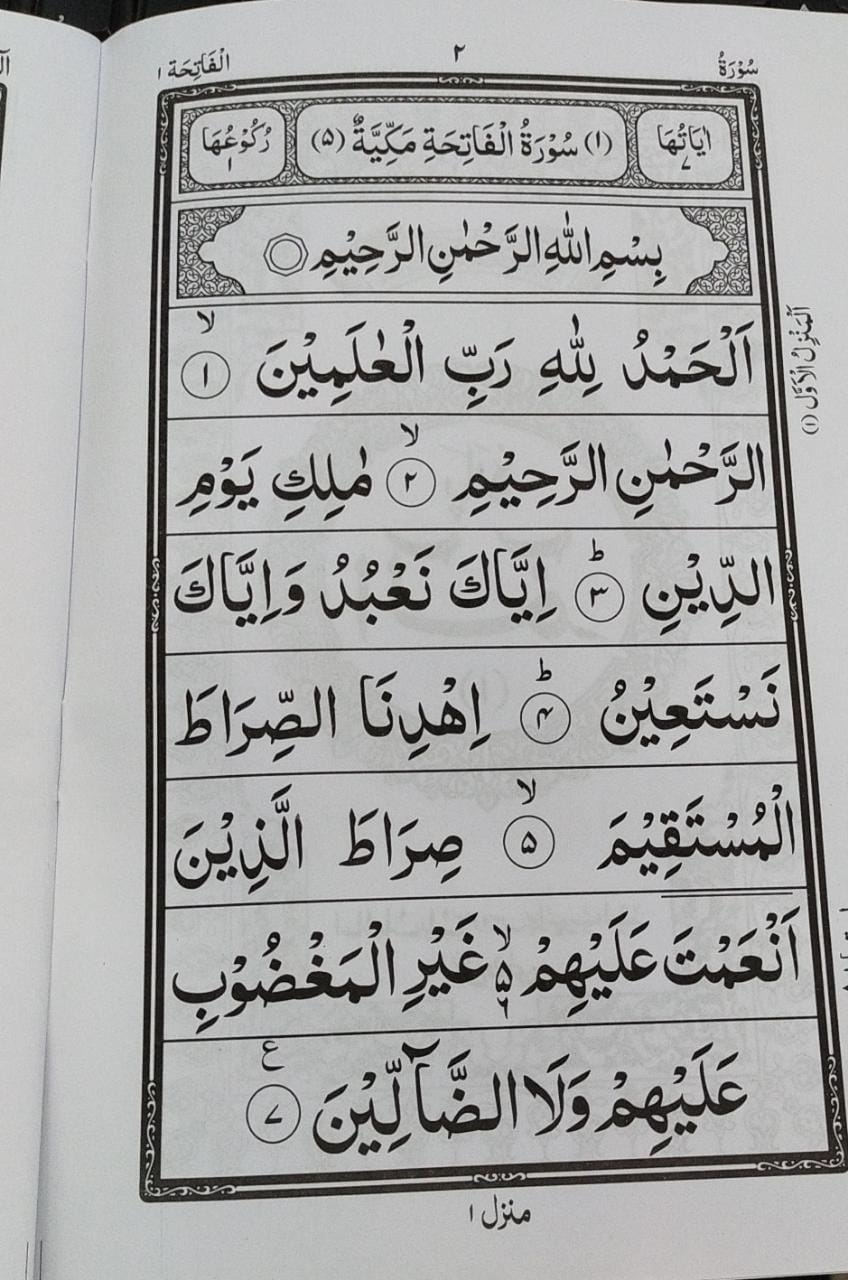 سُوْرَةُ ٢ اَلْفَاتِحَة ١
اٰيَاتُهَا ٧ (١) سُوْرَةُ الْفَاتِحَةِ مَكِّيَّةٌ (۵) رُكُوْعُهَا ١
بِسْمِ اللّٰهِ الرَّحْمٰنِ الرَّحِيْمِ
اَلْحَمْدُ لِلّٰهِ رَبِّ الْعٰلَمِيْنَ ۙ ١
الرَّحْمٰنِ الرَّحِيْمِ ۙ ٢ مٰلِكِ يَوْمِ
الدِّيْنِ ؕ ٣ اِيَّاكَ نَعْبُدُ وَاِيَّاكَ
نَسْتَعِيْنُ ؕ ۴ اِهْدِنَا الصِّرَاطَ
الْمُسْتَقِيْمَ ۙ ۵ صِرَاطَ الَّذِيْنَ
اَنْعَمْتَ عَلَيْهِمْ ۙ ۵ ٦ غَيْرِ الْمَغْضُوْبِ
عَلَيْهِمْ وَلَا الضَّآلِّيْنَ ع ٧
اَلْمَنْزِلُ الْاَوَّل (١)
منزل ١